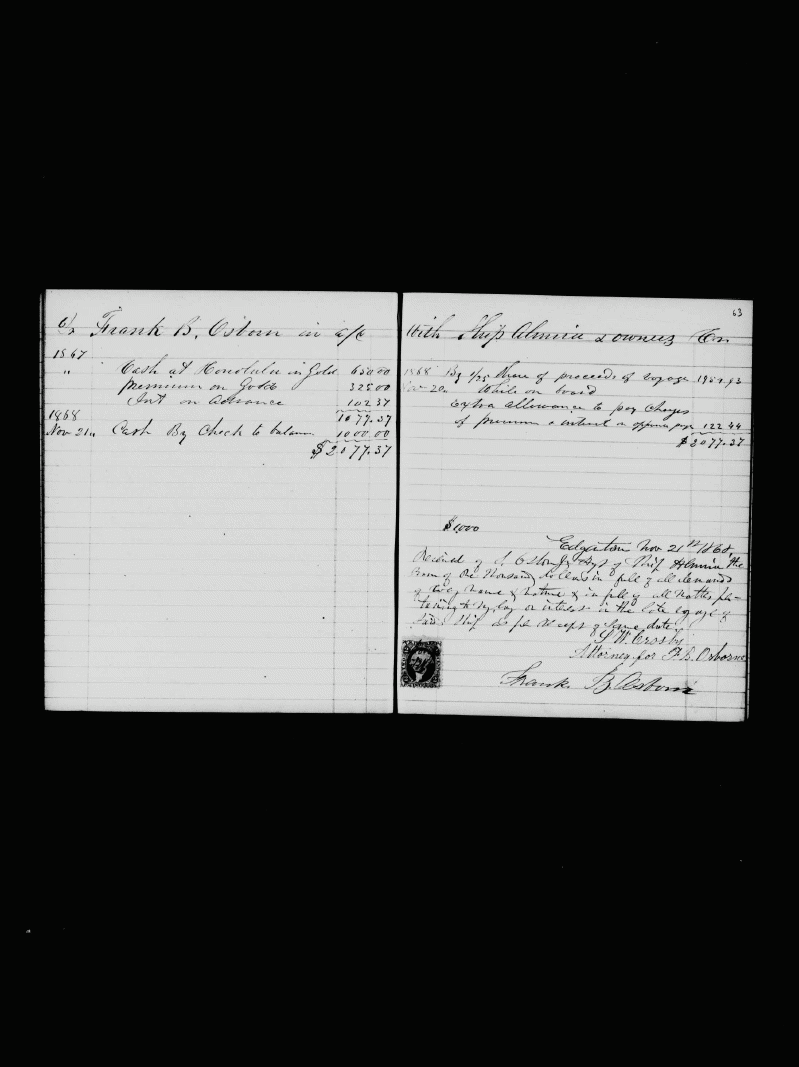 Dr Frank B. Osborn in a/c
1867
" Cash at Honolulu in Gold 650.00
premium on Gold 325.00
Int on advance 102.37
1868 1077.37
Nov 21 " Cash By Check to balance 1000.00
$2077.37
63
With Ship Almira & owners Cr
1868 By 1/25 Share of proceeds of voyage 1954.93
Nov 20 While on board
Extra allowance to pay charges
of premium & interest on opposite page 122.44
$2077.37
$1000
Edgartown Nov 21st 1868
Received of Osborn Jr Agt of Ship Almira the
Sum of One Thousand dollars in full of all demands
of every name & nature & in full of all matters per-
taining to my lay or interest in the late voyage of
Said Ship as per receipt of same date
Crosby
Attorney for F. B. Osborne
Frank B Osborn